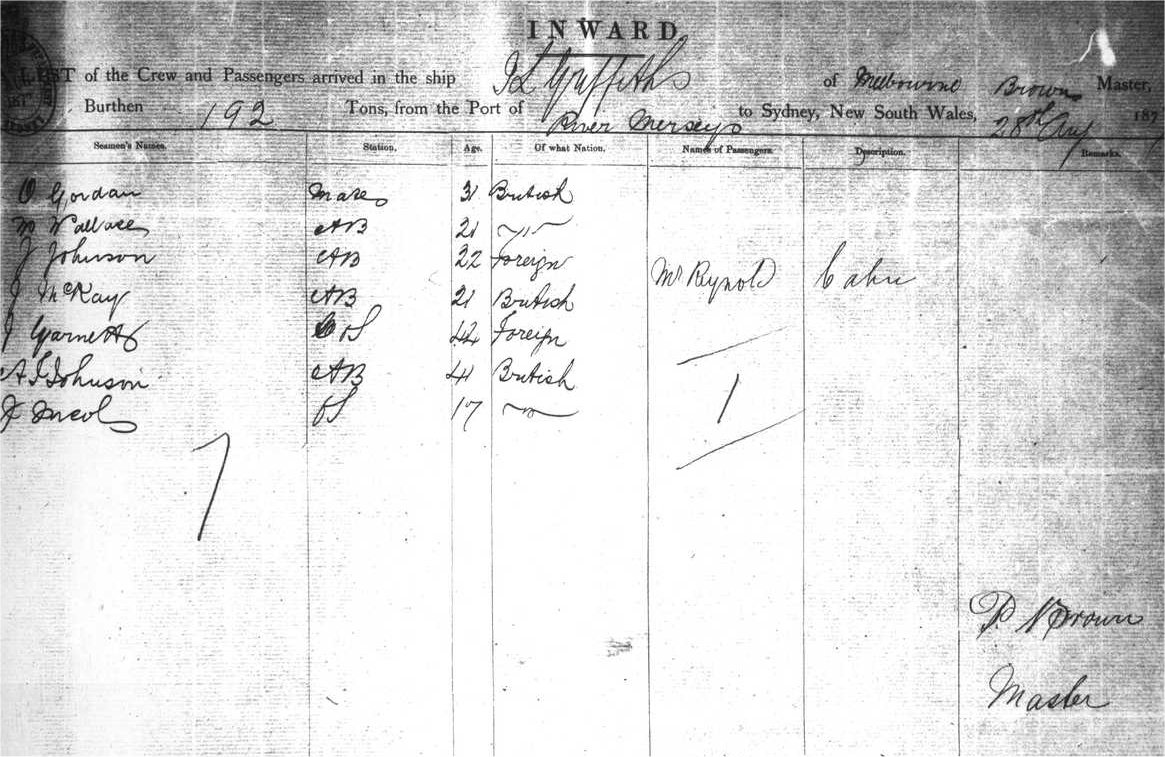 INWARD.
LIST of the Crew and Passengers arrived in the ship J L Griffiths of Melbourne Brown Master,
Burthen 192 Tons, from the Port of River Mersey to Sydney, New South Wales, 28th Aug 187
Seamen's Names. Station. Age. Of what Nation. Names of Passengers. Description. Remarks.
O Gordan Mate 31 British
Wallace AB 21 -"-
J Johnson AB 22 Foreign
Mr Reynold Cabin
J McKay AB 21 British
J Garnett OS 42 Foreign
A J Johnson AB 41 British
J Nicol OS 17 -"-
1
7
P. Brown
Master